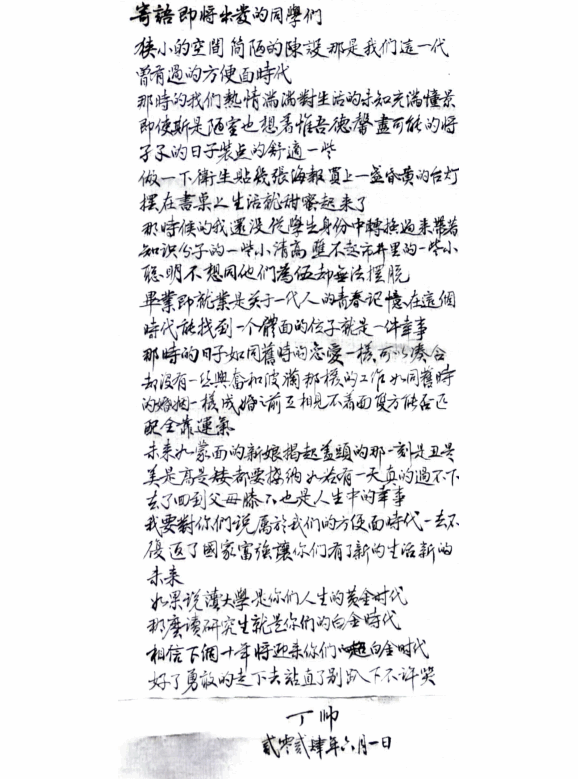 寄語即將出發的同學們
狹小的空間簡陋的陳設那是我們這一代
曾有過的方便面時代
那時的我們熱情滿滿對生活的未知充滿憧景
即使斯是陋室也想著惟吾德馨盡可能的將
孑孑的日子裝点的舒適一些
做一下衛生貼幾張海報買上一盞昏黄的台灯
擺在書桌上生活就甜蜜起来了
那時候的我還没從學生身份中轉換過来帶著
知识分子的一些小清高瞧不起市井里的一些小
聪明不想同他們為伍却無法擺脱
畢業即就業是关于一代人的青春记憶在這個
時代能找到一个體面的位子就是一件幸事
那時的日子如同舊時的恋愛一樣可以湊合
却没有一丝興奮和波瀾那樣的工作如同舊時
的婚姻一樣成婚之前互相見不着面雙方能否匹
配全靠運氣
未来如蒙面的新娘揭起盖頭的那一刻是丑是
美是高是矮都要接纳如若有一天真的過不下
去了回到父母膝下也是人生中的幸事
我要對你們说屬於我們的方便面時代一去不
復返了國家富強讓你們有了新的生活新的
未来
如果说讀大學是你們人生的黄金时代
那麼读研究生就是你們的白金時代
相信下個十年將迎来你們的超白金时代
好了勇敢的走下去站直了别趴下不许哭
丁帅
貳零貳肆年六月一日